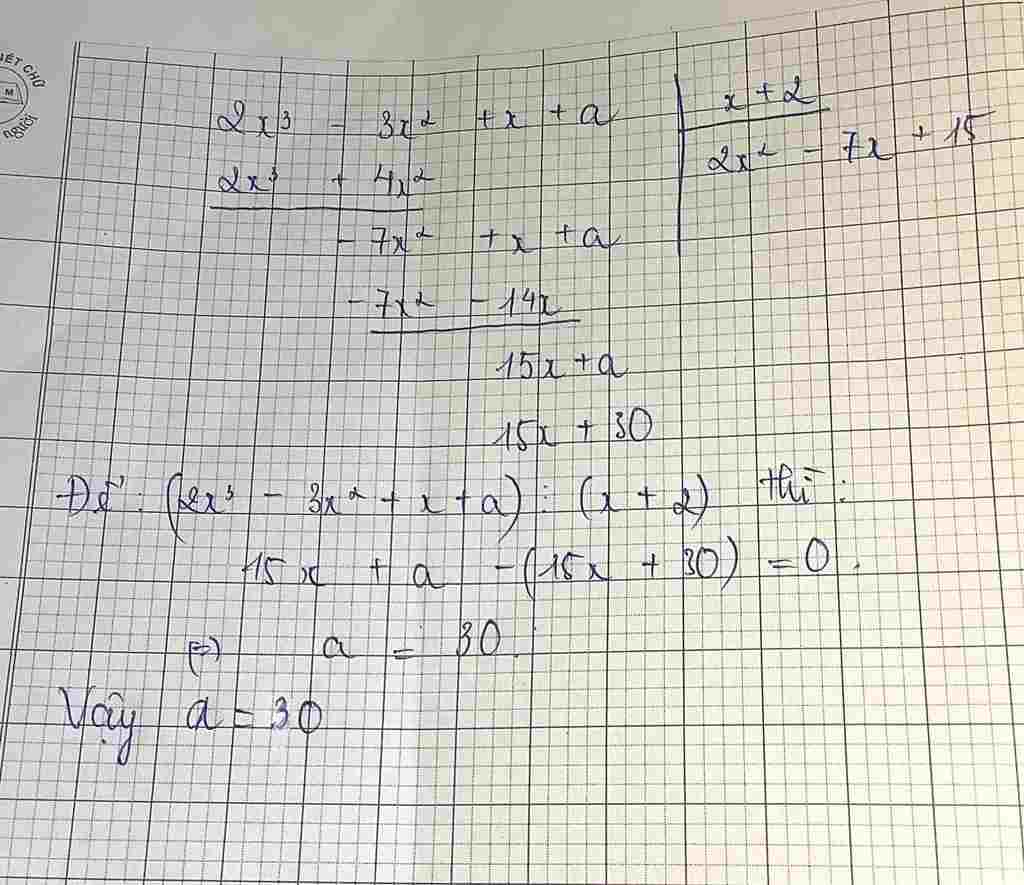 IẾT CHỮ
M
người
2x³ - 3x² + x + a | x + 2
2x³ + 4x² | 2x² - 7x + 15
- 7x² + x + a
- 7x² - 14x
15x + a
15x + 30
Để : (2x³ - 3x² + x + a) : (x + 2) thì :
15x + a - (15x + 30) = 0.
(=>) a = 30.
Vậy a = 30